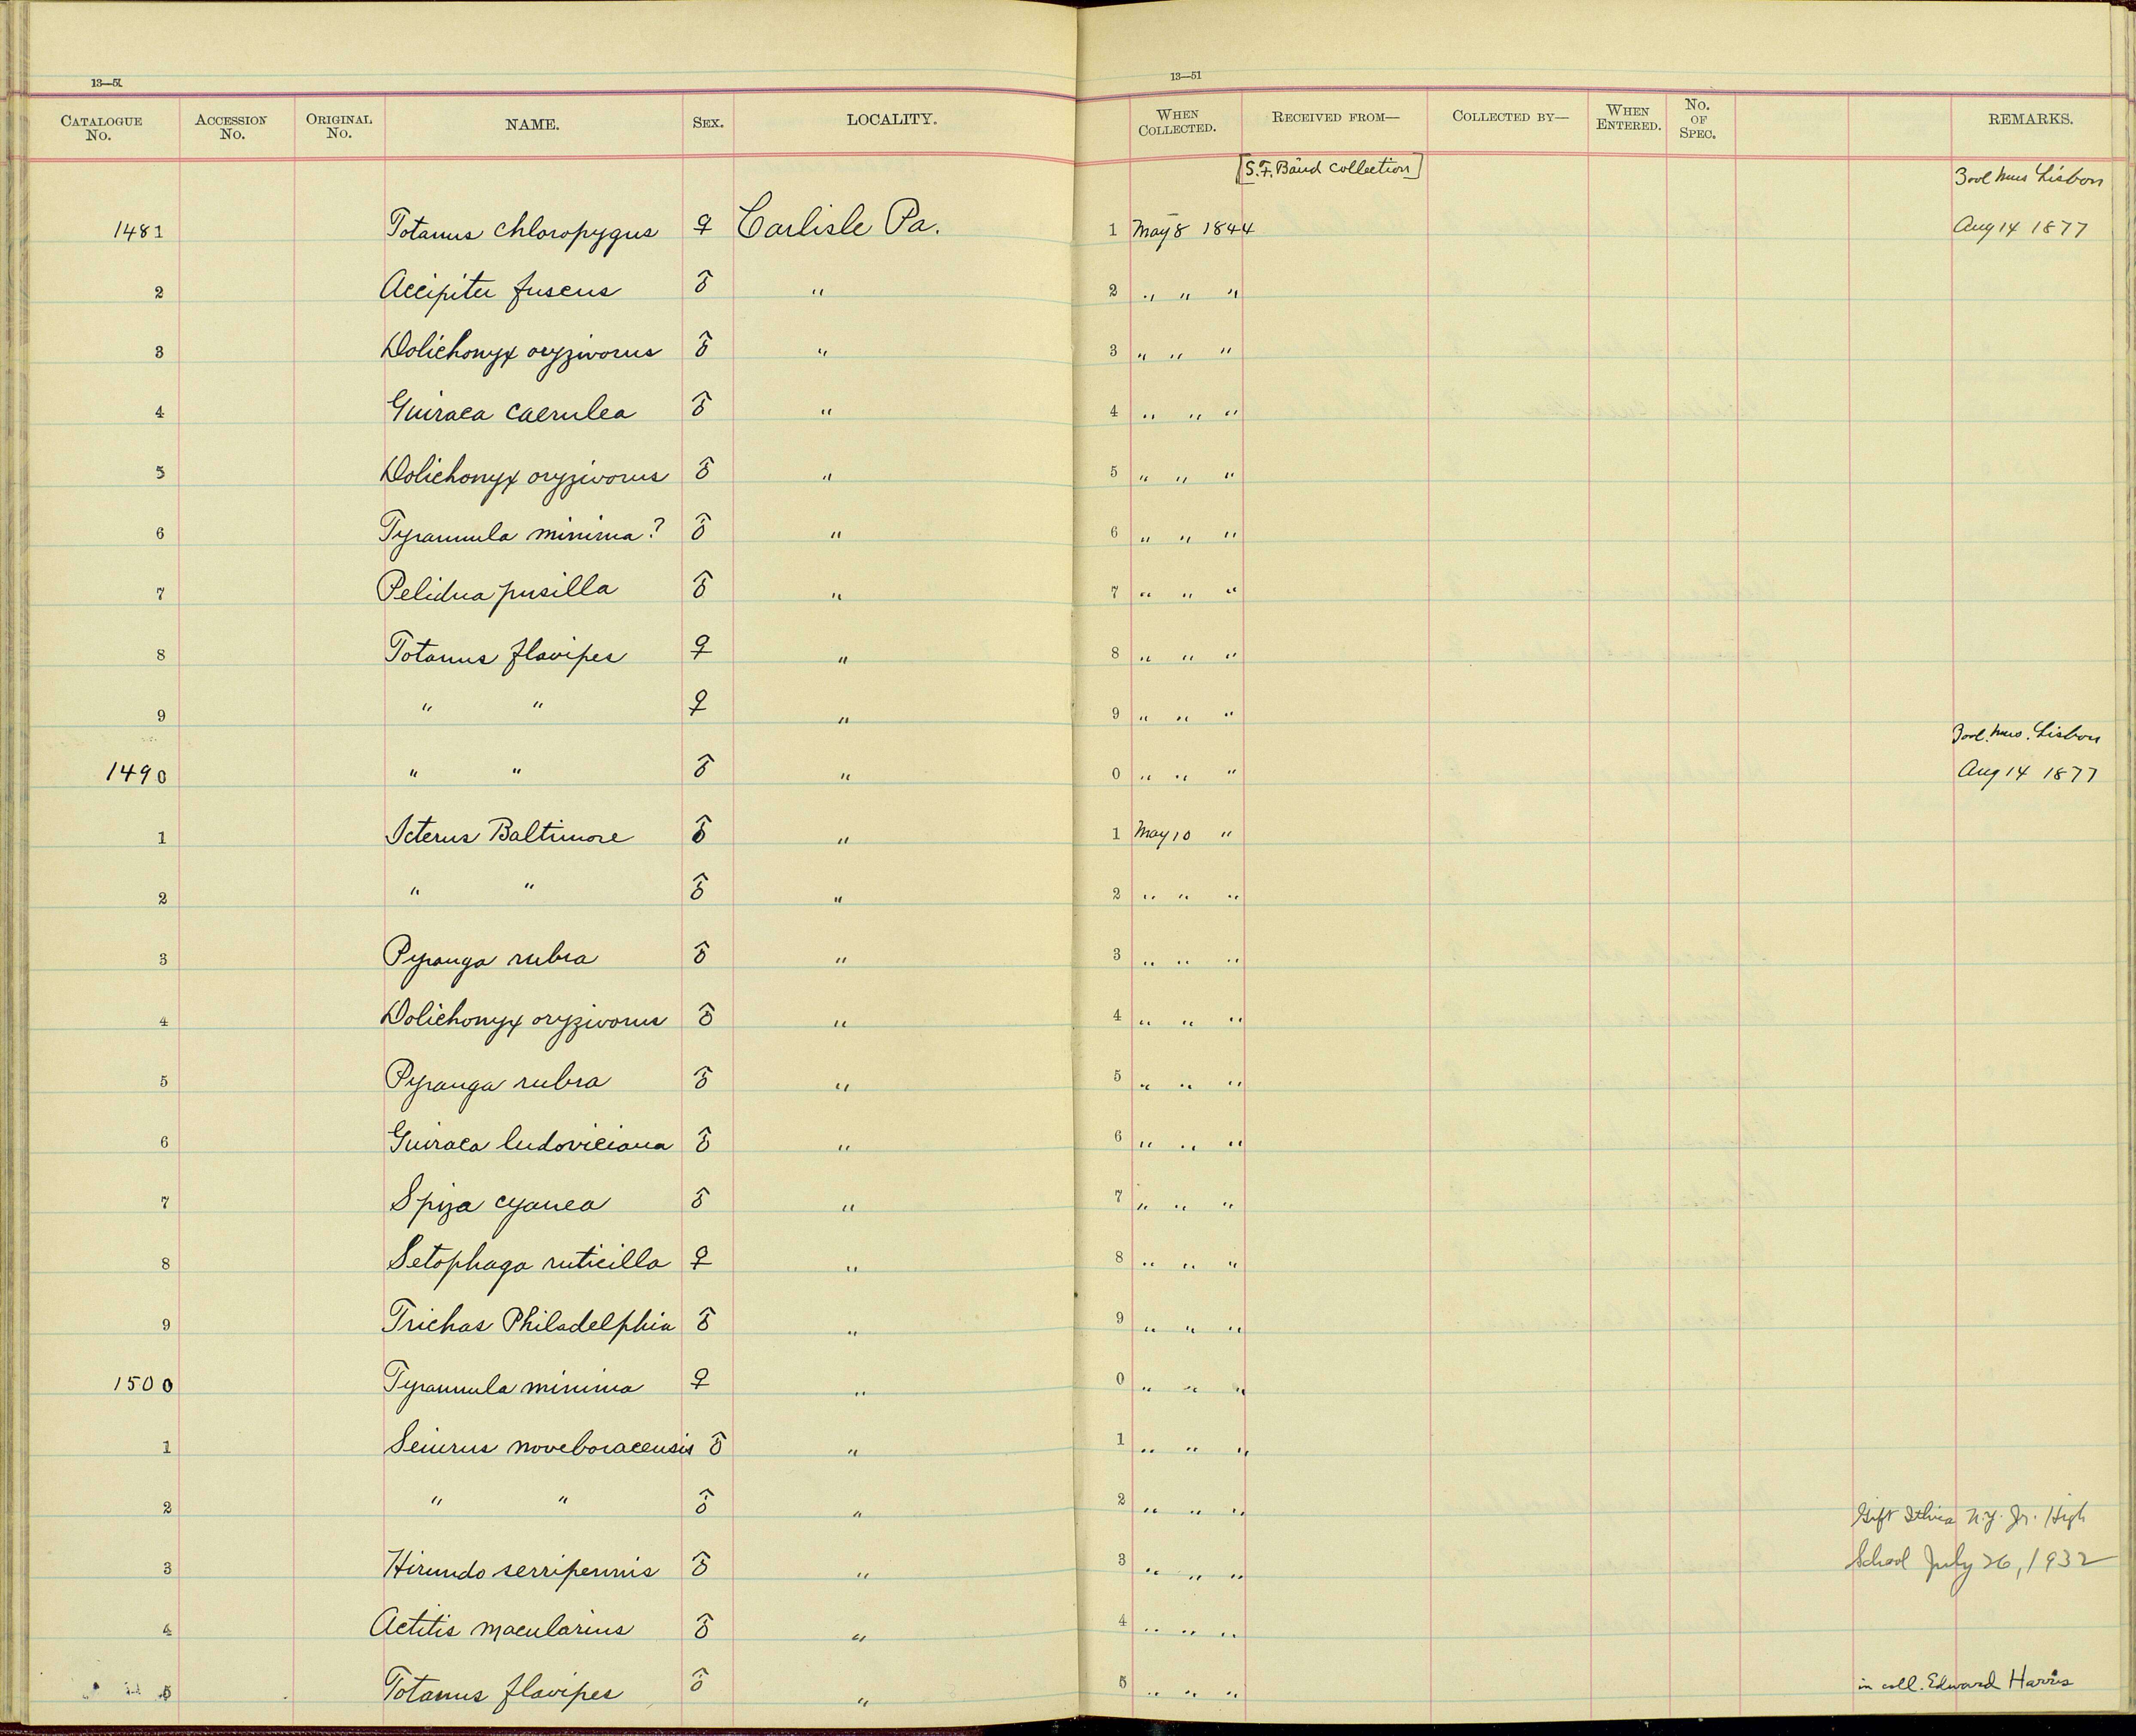 13—51
13—51
CATALOGUE No. ACCESSION No. ORIGINAL No. NAME. SEX. LOCALITY. WHEN COLLECTED. RECEIVED FROM— COLLECTED BY— WHEN ENTERED. No. OF SPEC. REMARKS.
[S. F. Baird collection] Zool Mus Lisbon
1481 Totanus chloropygus ♀ Carlisle Pa. 1 May 8 1844 Aug 14 1877
2 Accipiter fuscus ♂ " 2 " " "
3 Dolichonyx oryzivorus ♂ " 3 " " "
4 Guiraca caerulea ♂ " 4 " " "
5 Dolichonyx oryzivorus ♂ " 5 " " "
6 Tyrannula minima? ♂ " 6 " " "
7 Pelidna pusilla ♂ " 7 " " "
8 Totanus flavipes ♀ " 8 " " "
9 " " ♀ " 9 " " "
Zool. Mus. Lisbon
1490 " " ♂ " 0 " " " Aug 14 1877
1 Icterus Baltimore ♂ " 1 May 10 "
2 " " ♂ " 2 " " "
3 Pyranga rubra ♂ " 3 " " "
4 Dolichonyx oryzivorus ♂ " 4 " " "
5 Pyranga rubra ♂ " 5 " " "
6 Guiraca ludoviciana ♂ " 6 " " "
7 Spiza cyanea ♂ " 7 " " "
8 Setophaga ruticilla ♀ " 8 " " "
9 Trichas Philadelphia ♂ " 9 " " "
1500 Tyrannula minima ♀ " 0 " " "
1 Seiurus noveboracensis ♂ " 1 " " "
2 " " ♂ " 2 " " " Gift Ithica N.Y. Jr. High
3 Hirundo serripennis ♂ " 3 " " " School July 26, 1932
4 Actitis macularius ♂ " 4 " " "
5 Totanus flavipes ♂ " 5 " " " in coll. Edward Harris